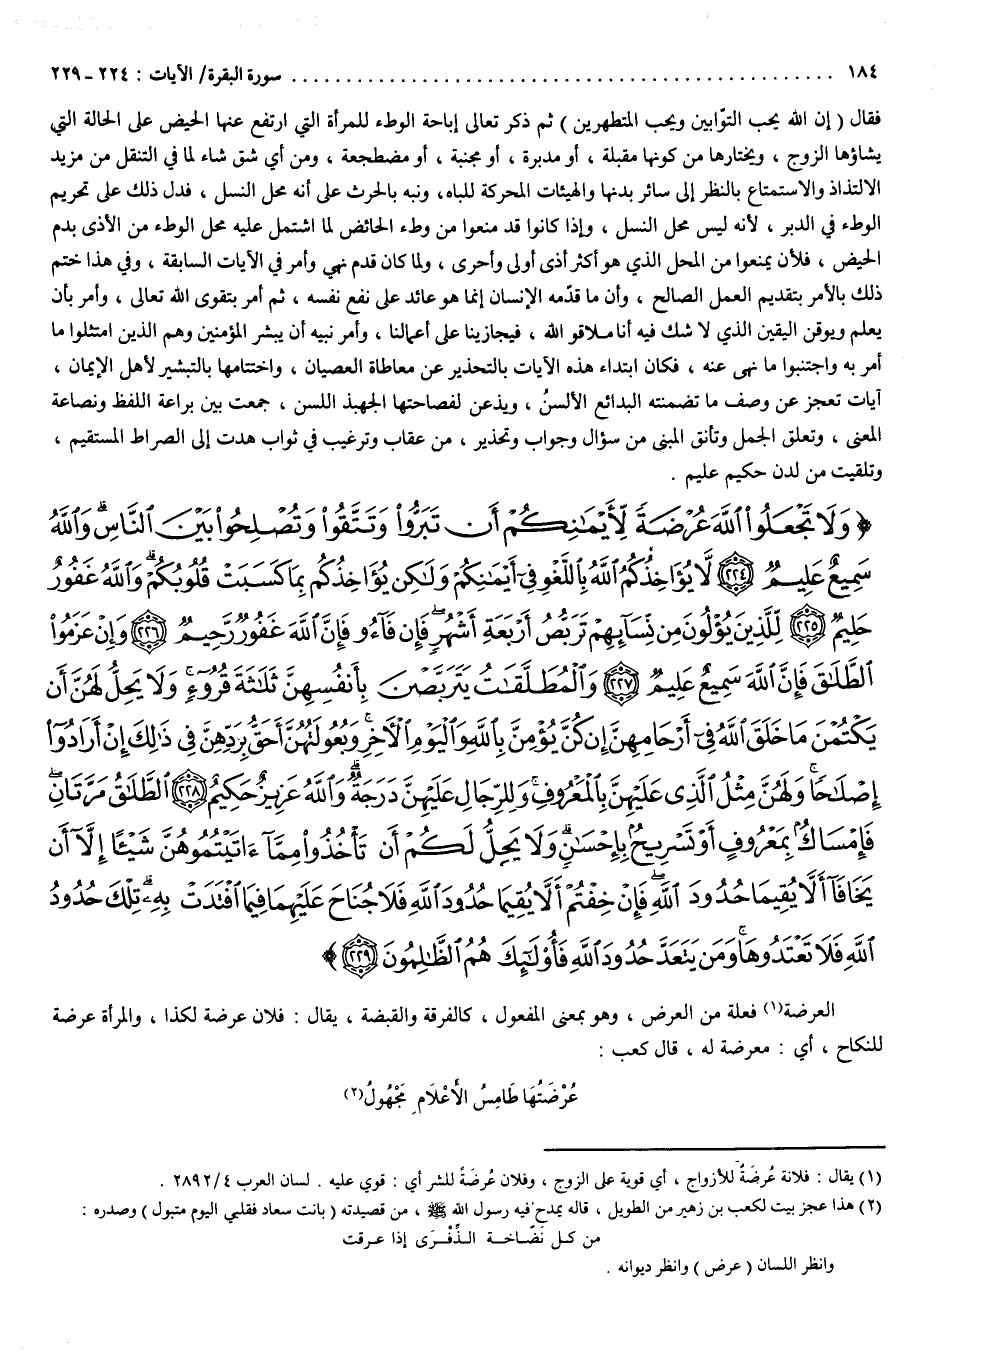 ١٨٤ ............................................................ سورة البقرة/ الآيات : ٢٢٤ - ٢٢٩
فقال ( إن الله يحب التوّابين ويحب المتطهرين ) ثم ذكر تعالى إباحة الوطء للمرأة التي ارتفع عنها الحيض على الحالة التي
يشاؤها الزوج ، ويختارها من كونها مقبلة ، أو مدبرة ، أو مجنبة ، أو مضطجعة ، ومن أي شق شاء لما في التنقل من مزيد
الالتذاذ والاستمتاع بالنظر إلى سائر بدنها والهيئات المحركة للباه، ونبه بالحرث على أنه محل النسل ، فدل ذلك على تحريم
الوطء في الدبر ، لأنه ليس محل النسل ، وإذا كانوا قد منعوا من وطء الحائض لما اشتمل عليه محل الوطء من الأذى بدم
الحيض ، فلأن يمنعوا من المحل الذي هو أكثر أذى أولى وأحرى ، ولما كان قدم نهي وأمر في الآيات السابقة ، وفي هذا ختم
ذلك بالأمر بتقديم العمل الصالح ، وأن ما قدّمه الإنسان إنما هو عائد على نفع نفسه ، ثم أمر بتقوى الله تعالى ، وأمر بأن
يعلم ويوقن اليقين الذي لا شك فيه أنا ملاقو الله ، فيجازينا على أعمالنا ، وأمر نبيه أن يبشر المؤمنين وهم الذين امتثلوا ما
أمر به واجتنبوا ما نهى عنه ، فكان ابتداء هذه الآيات بالتحذير عن معاطاة العصيان ، واختتامها بالتبشير لأهل الإيمان ،
آيات تعجز عن وصف ما تضمنته البدائع الألسنُ ، ويذعن لفصاحتها الجهبذ اللسن ، جمعت بين براعة اللفظ ونصاعة
المعنى ، وتعلق الجمل وتأنق المبنى من سؤال وجواب وتحذير ، من عقاب وترغيب في ثواب هدت إلى الصراط المستقيم ،
وتلقيت من لدن حكيم عليم .
﴿ وَلَا تَجْعَلُوا۟ ٱللَّهَ عُرْضَةً لِّأَيْمَـٰنِكُمْ أَن تَبَرُّوا۟ وَتَتَّقُوا۟ وَتُصْلِحُوا۟ بَيْنَ ٱلنَّاسِ ۗ وَٱللَّهُ
سَمِيعٌ عَلِيمٌ ﴿٢٢٤﴾ لَّا يُؤَاخِذُكُمُ ٱللَّهُ بِٱللَّغْوِ فِىٓ أَيْمَـٰنِكُمْ وَلَـٰكِن يُؤَاخِذُكُم بِمَا كَسَبَتْ قُلُوبُكُمْ ۗ وَٱللَّهُ غَفُورٌ
حَلِيمٌ ﴿٢٢٥﴾ لِّلَّذِينَ يُؤْلُونَ مِن نِّسَآئِهِمْ تَرَبُّصُ أَرْبَعَةِ أَشْهُرٍ ۖ فَإِن فَآءُو فَإِنَّ ٱللَّهَ غَفُورٌ رَّحِيمٌ ﴿٢٢٦﴾ وَإِنْ عَزَمُوا۟
ٱلطَّلَـٰقَ فَإِنَّ ٱللَّهَ سَمِيعٌ عَلِيمٌ ﴿٢٢٧﴾ وَٱلْمُطَلَّقَـٰتُ يَتَرَبَّصْنَ بِأَنفُسِهِنَّ ثَلَـٰثَةَ قُرُوٓءٍ ۚ وَلَا يَحِلُّ لَهُنَّ أَن
يَكْتُمْنَ مَا خَلَقَ ٱللَّهُ فِىٓ أَرْحَامِهِنَّ إِن كُنَّ يُؤْمِنَّ بِٱللَّهِ وَٱلْيَوْمِ ٱلْـَٔاخِرِ ۚ وَبُعُولَتُهُنَّ أَحَقُّ بِرَدِّهِنَّ فِى ذَٰلِكَ إِنْ أَرَادُوٓا۟
إِصْلَـٰحًا ۚ وَلَهُنَّ مِثْلُ ٱلَّذِى عَلَيْهِنَّ بِٱلْمَعْرُوفِ ۚ وَلِلرِّجَالِ عَلَيْهِنَّ دَرَجَةٌ ۗ وَٱللَّهُ عَزِيزٌ حَكِيمٌ ﴿٢٢٨﴾ ٱلطَّلَـٰقُ مَرَّتَانِ ۖ
فَإِمْسَاكٌۢ بِمَعْرُوفٍ أَوْ تَسْرِيحٌۢ بِإِحْسَـٰنٍ ۗ وَلَا يَحِلُّ لَكُمْ أَن تَأْخُذُوا۟ مِمَّآ ءَاتَيْتُمُوهُنَّ شَيْـًٔا إِلَّآ أَن
يَخَافَآ أَلَّا يُقِيمَا حُدُودَ ٱللَّهِ ۖ فَإِنْ خِفْتُمْ أَلَّا يُقِيمَا حُدُودَ ٱللَّهِ فَلَا جُنَاحَ عَلَيْهِمَا فِيمَا ٱفْتَدَتْ بِهِۦ ۗ تِلْكَ حُدُودُ
ٱللَّهِ فَلَا تَعْتَدُوهَا ۚ وَمَن يَتَعَدَّ حُدُودَ ٱللَّهِ فَأُو۟لَـٰٓئِكَ هُمُ ٱلظَّـٰلِمُونَ ﴿٢٢٩﴾ ﴾
العرضة(١) فعلة من العرض ، وهو بمعنى المفعول ، كالفرقة والقبضة ، يقال : فلان عرضة لكذا ، والمرأة عرضة
للنكاح ، أي : معرضة له ، قال كعب :
عُرْضَتُهَا طَامِسُ الأَعْلَامِ مَجْهُولُ(٢)
(١) يقال : فلانة عُرضَةٌ للأزواج ، أي قوية على الزوج ، وفلان عُرضَةٌ للشر أي : قوي عليه . لسان العرب ٢٨٩٢/٤ .
(٢) هذا عجز بيت لكعب بن زهير من الطويل ، قاله يمدح فيه رسول الله ﷺ ، من قصيدته ( بانت سعاد فقلبي اليوم متبول ) وصدره :
من كـل نَضّاخـة الـذِّفْـرَى إذا عـرقت
وانظر اللسان ( عرض ) وانظر ديوانه .